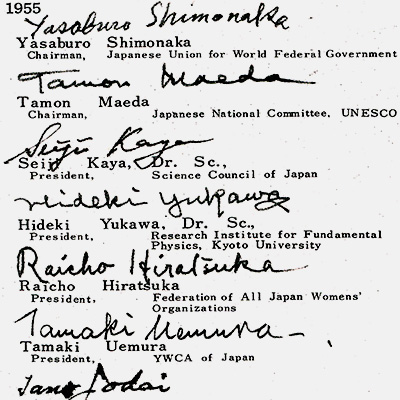 1955
Yasaburo Shimonaka
Yasaburo Shimonaka
Chairman, Japanese Union for World Federal Government
Tamon Maeda
Tamon Maeda
Chairman, Japanese National Committee. UNESCO
Seiji Kaya
Seiji Kaya, Dr. Sc.,
President, Science Council of Japan
Hideki Yukawa
Hideki Yukawa, Dr. Sc.,
President, Research Institute for Fundamental
Physics, Kyoto University
Raicho Hiratsuka
Raicho Hiratsuka
President, Federation of All Japan Womens'
Organizations
Tamaki Uemura
Tamaki Uemura
President, YWCA of Japan
Tano Jodai